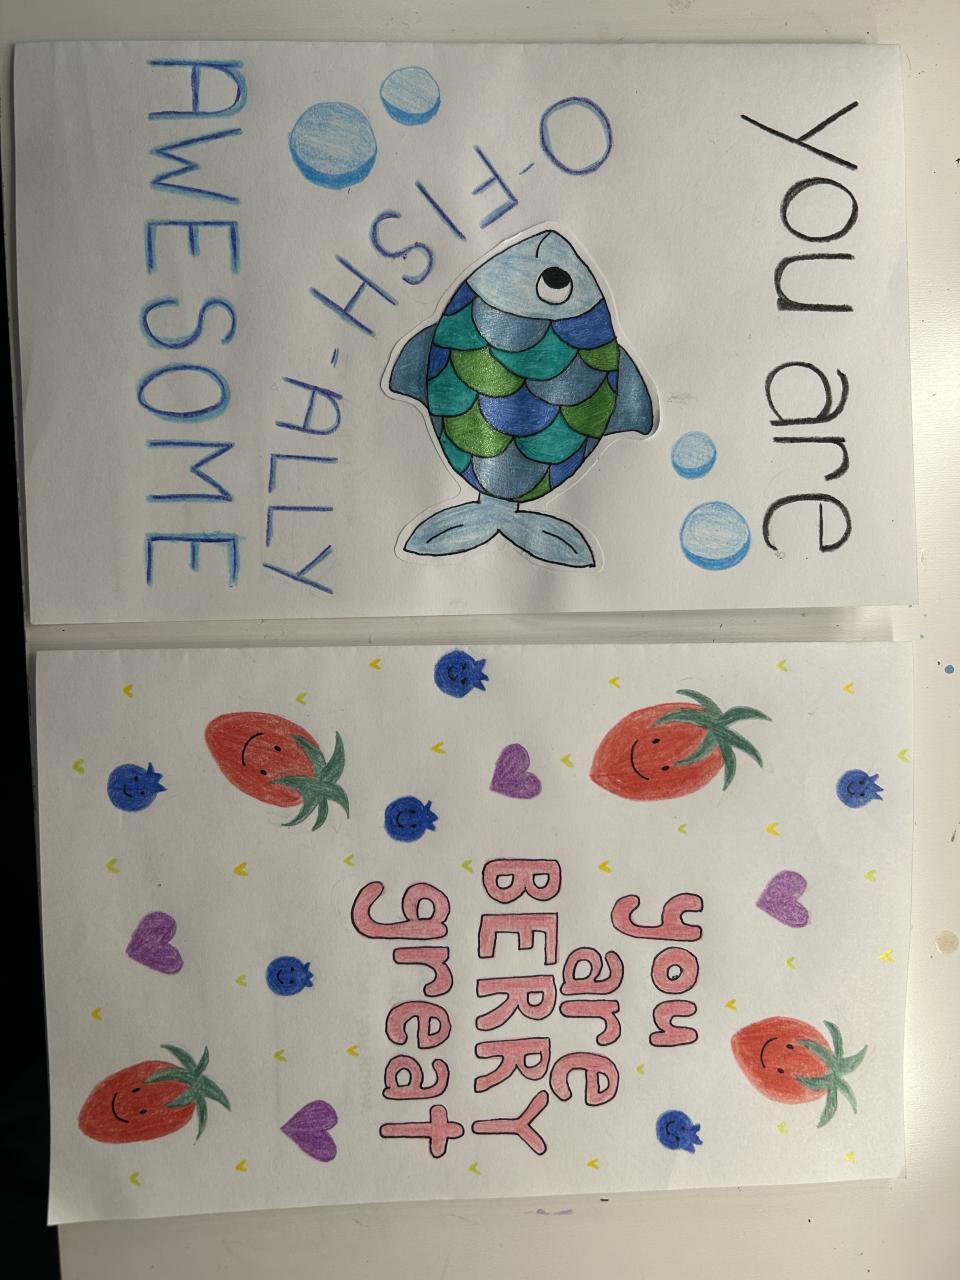 you are
O-FISH-ALLY
AWESOME
you
are
BERRY
great